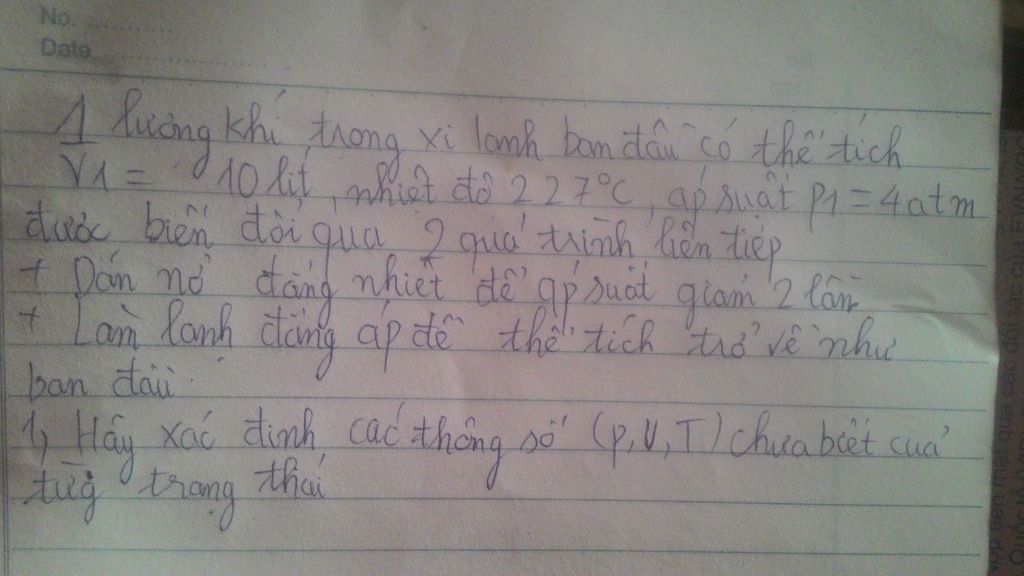 No.
Date
1 lượng khí trong xi lanh ban đầu có thể tích
V1 = 10 lít, nhiệt độ 227°C, áp suất p1 = 4atm
được biến đổi qua 2 quá trình liên tiếp
+ Dãn nở đẳng nhiệt để áp suất giảm 2 lần
+ Làm lạnh đẳng áp để thể tích trở về như
ban đầu.
1, Hãy xác định các thông số (p,V,T) chưa biết của
từg trạng thái